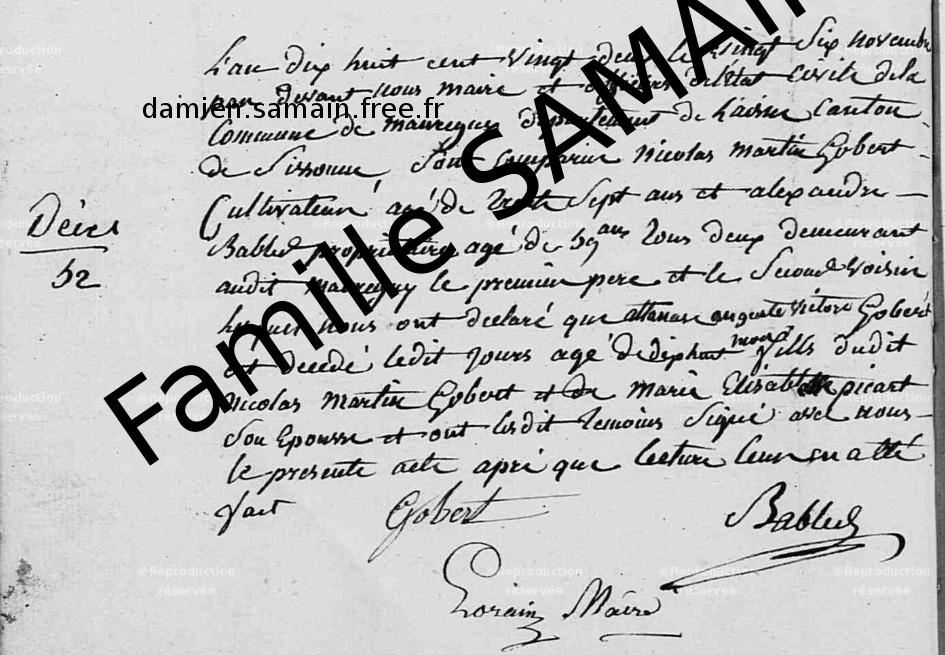 L'an dix huit cent vingt deux le vingt Six novembre
par devant nous maire et officiers d'létat Civile de la
Commune de mauregny département de Laisne Canton
de Sissonne Sont Comparu Nicolas Martin Gobert
Cultivateur agé de trente Sept ans et alexandre
Bablud propriétaire agé de 59 ans tous deux demeurant
audit mauregny le premier pere et le Second voisin
Lesquel nous ont declaré que attanase auguste victore Gobert
et decedé ledit Jours agé de dixhuit mois fills dudit
Nicolas Martin Gobert et de Marie Elisabette picart
Son Epousse et ont lesdit temoins Signé avec nous
le presente acte apré que lecture leur en a été
fait
Décès
52
Gobert
Bablud
Lorain Maire
Famille SAMAIN
damien.samain.free.fr
©Reproduction
réservée